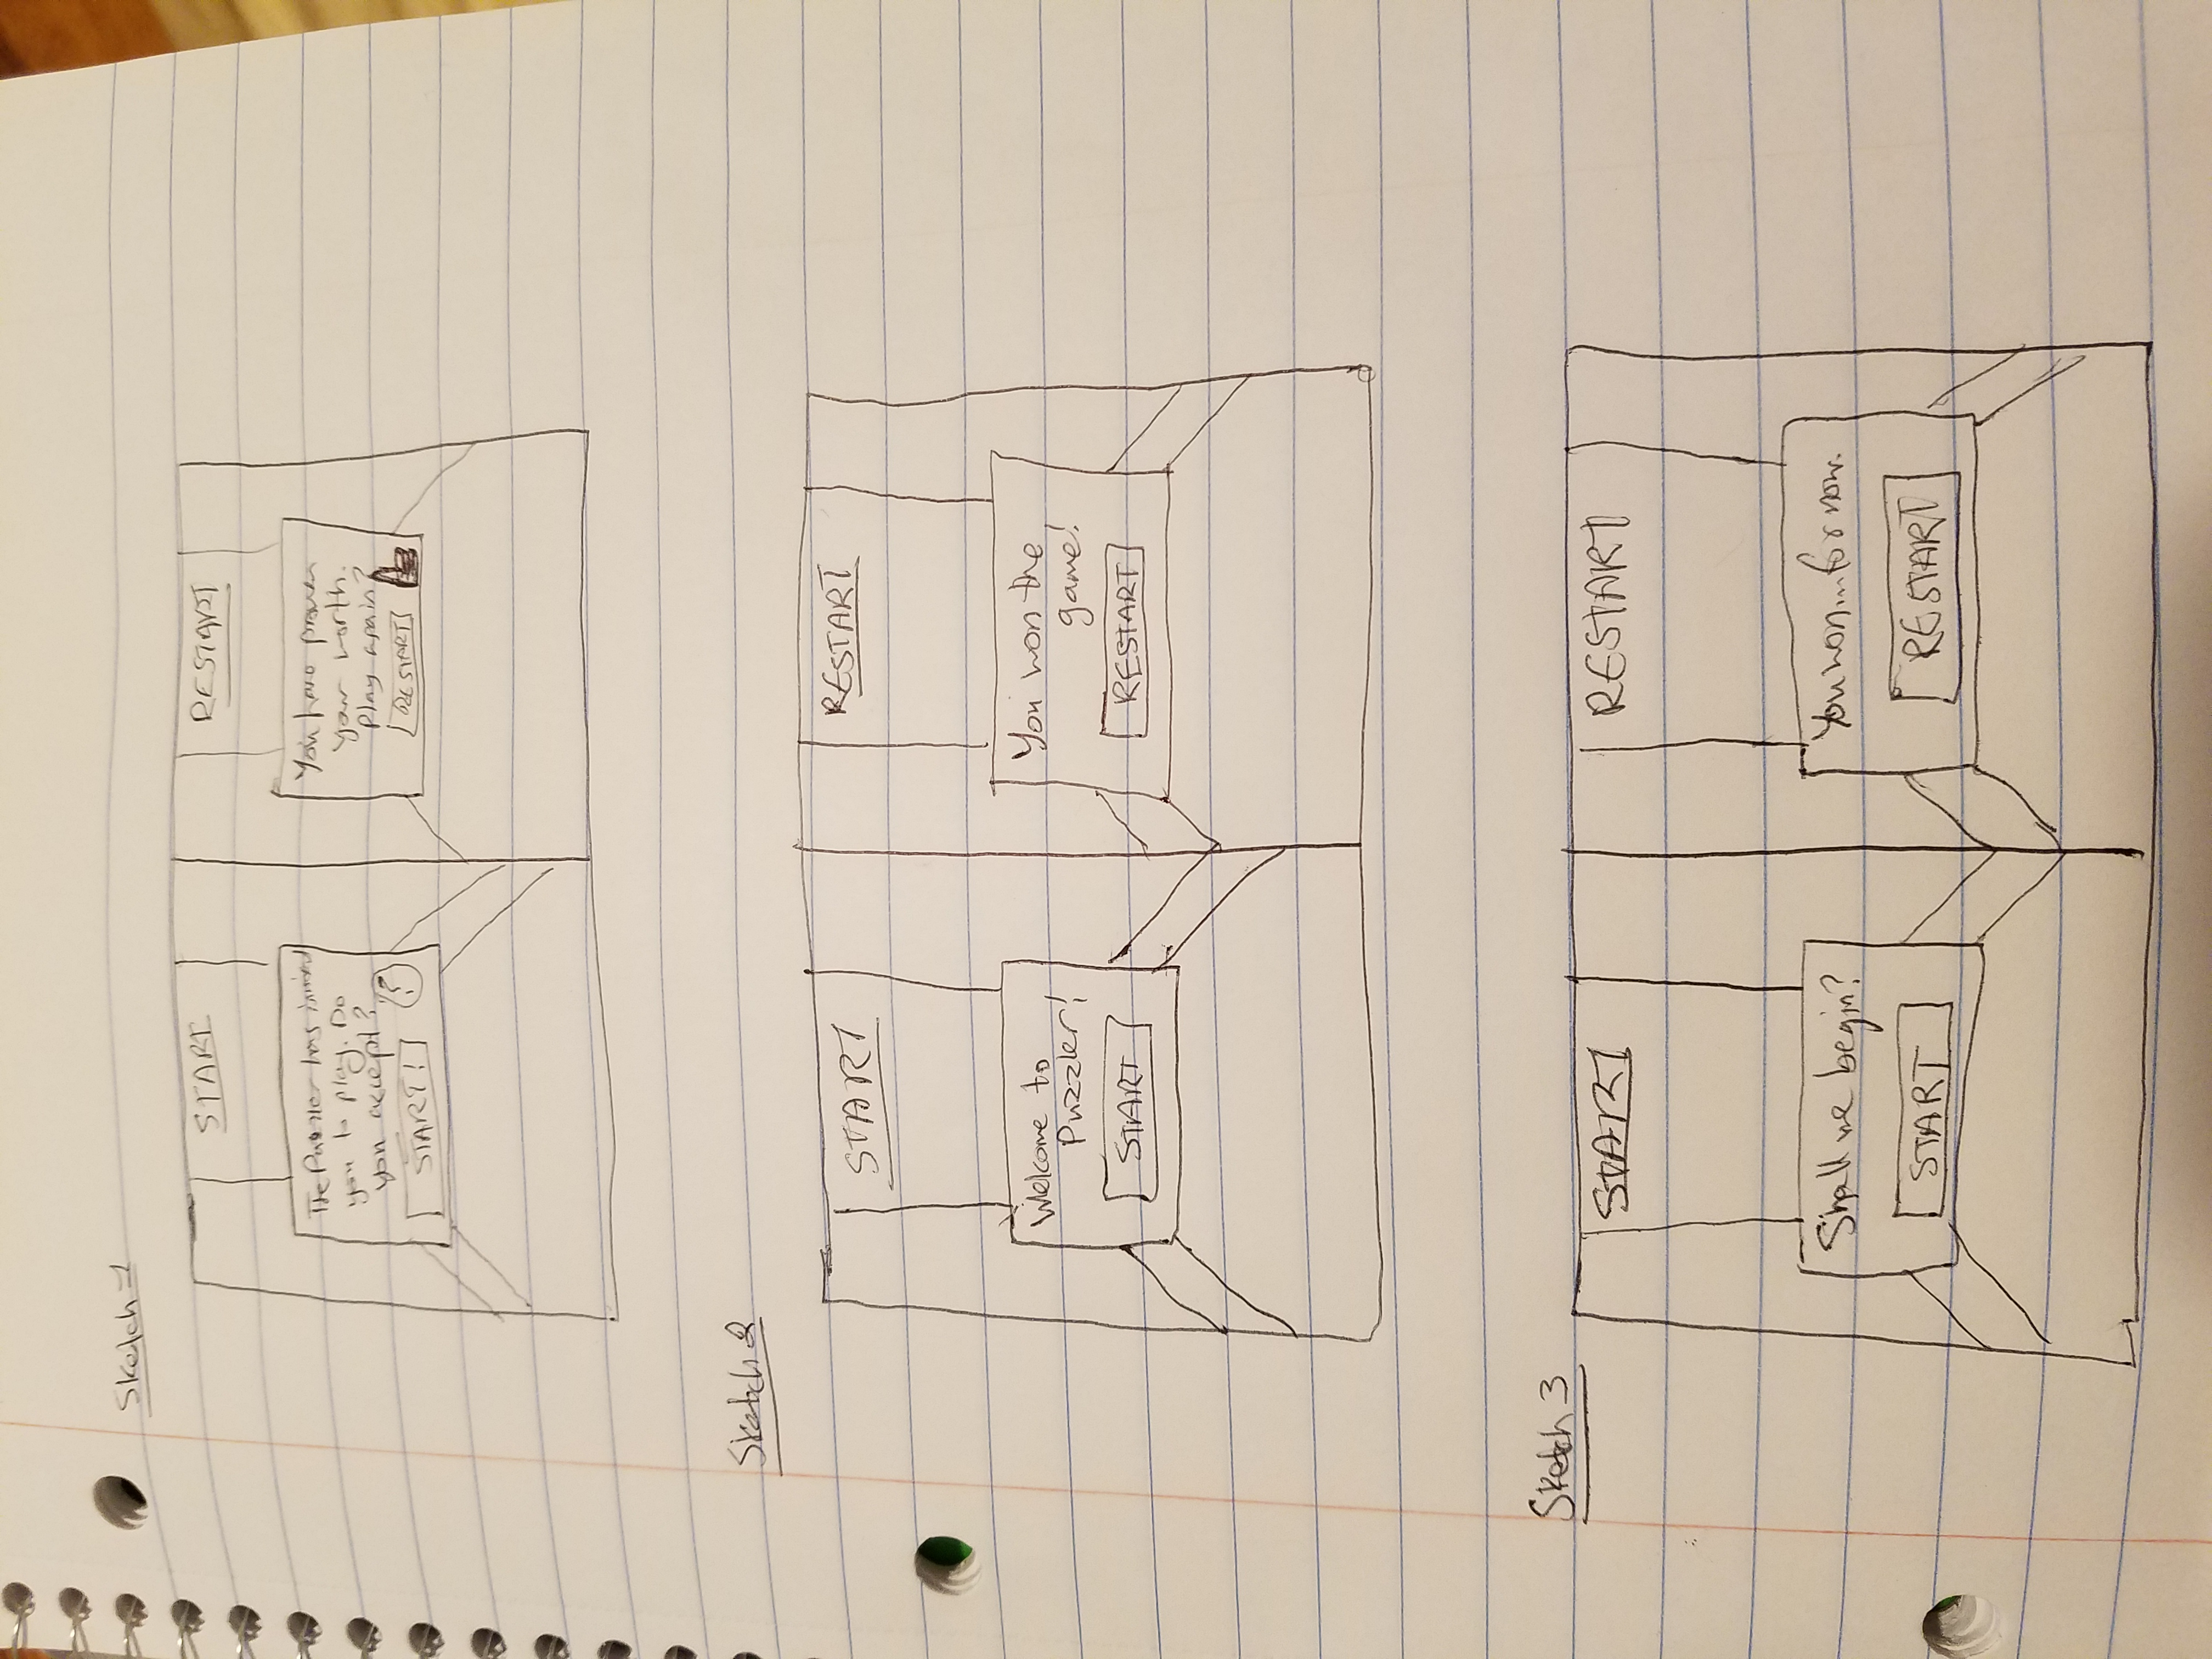 Sketch 1
START
The Puzzler has invited
you to play. Do
you accept?
START!
?
RESTART
You have proven
your worth.
Play again?
RESTART
Sketch 2
START
Welcome to
Puzzler!
START
RESTART
You won the
game!
RESTART
Sketch 3
START
Shall we begin?
START
RESTART
You won...for now.
RESTART